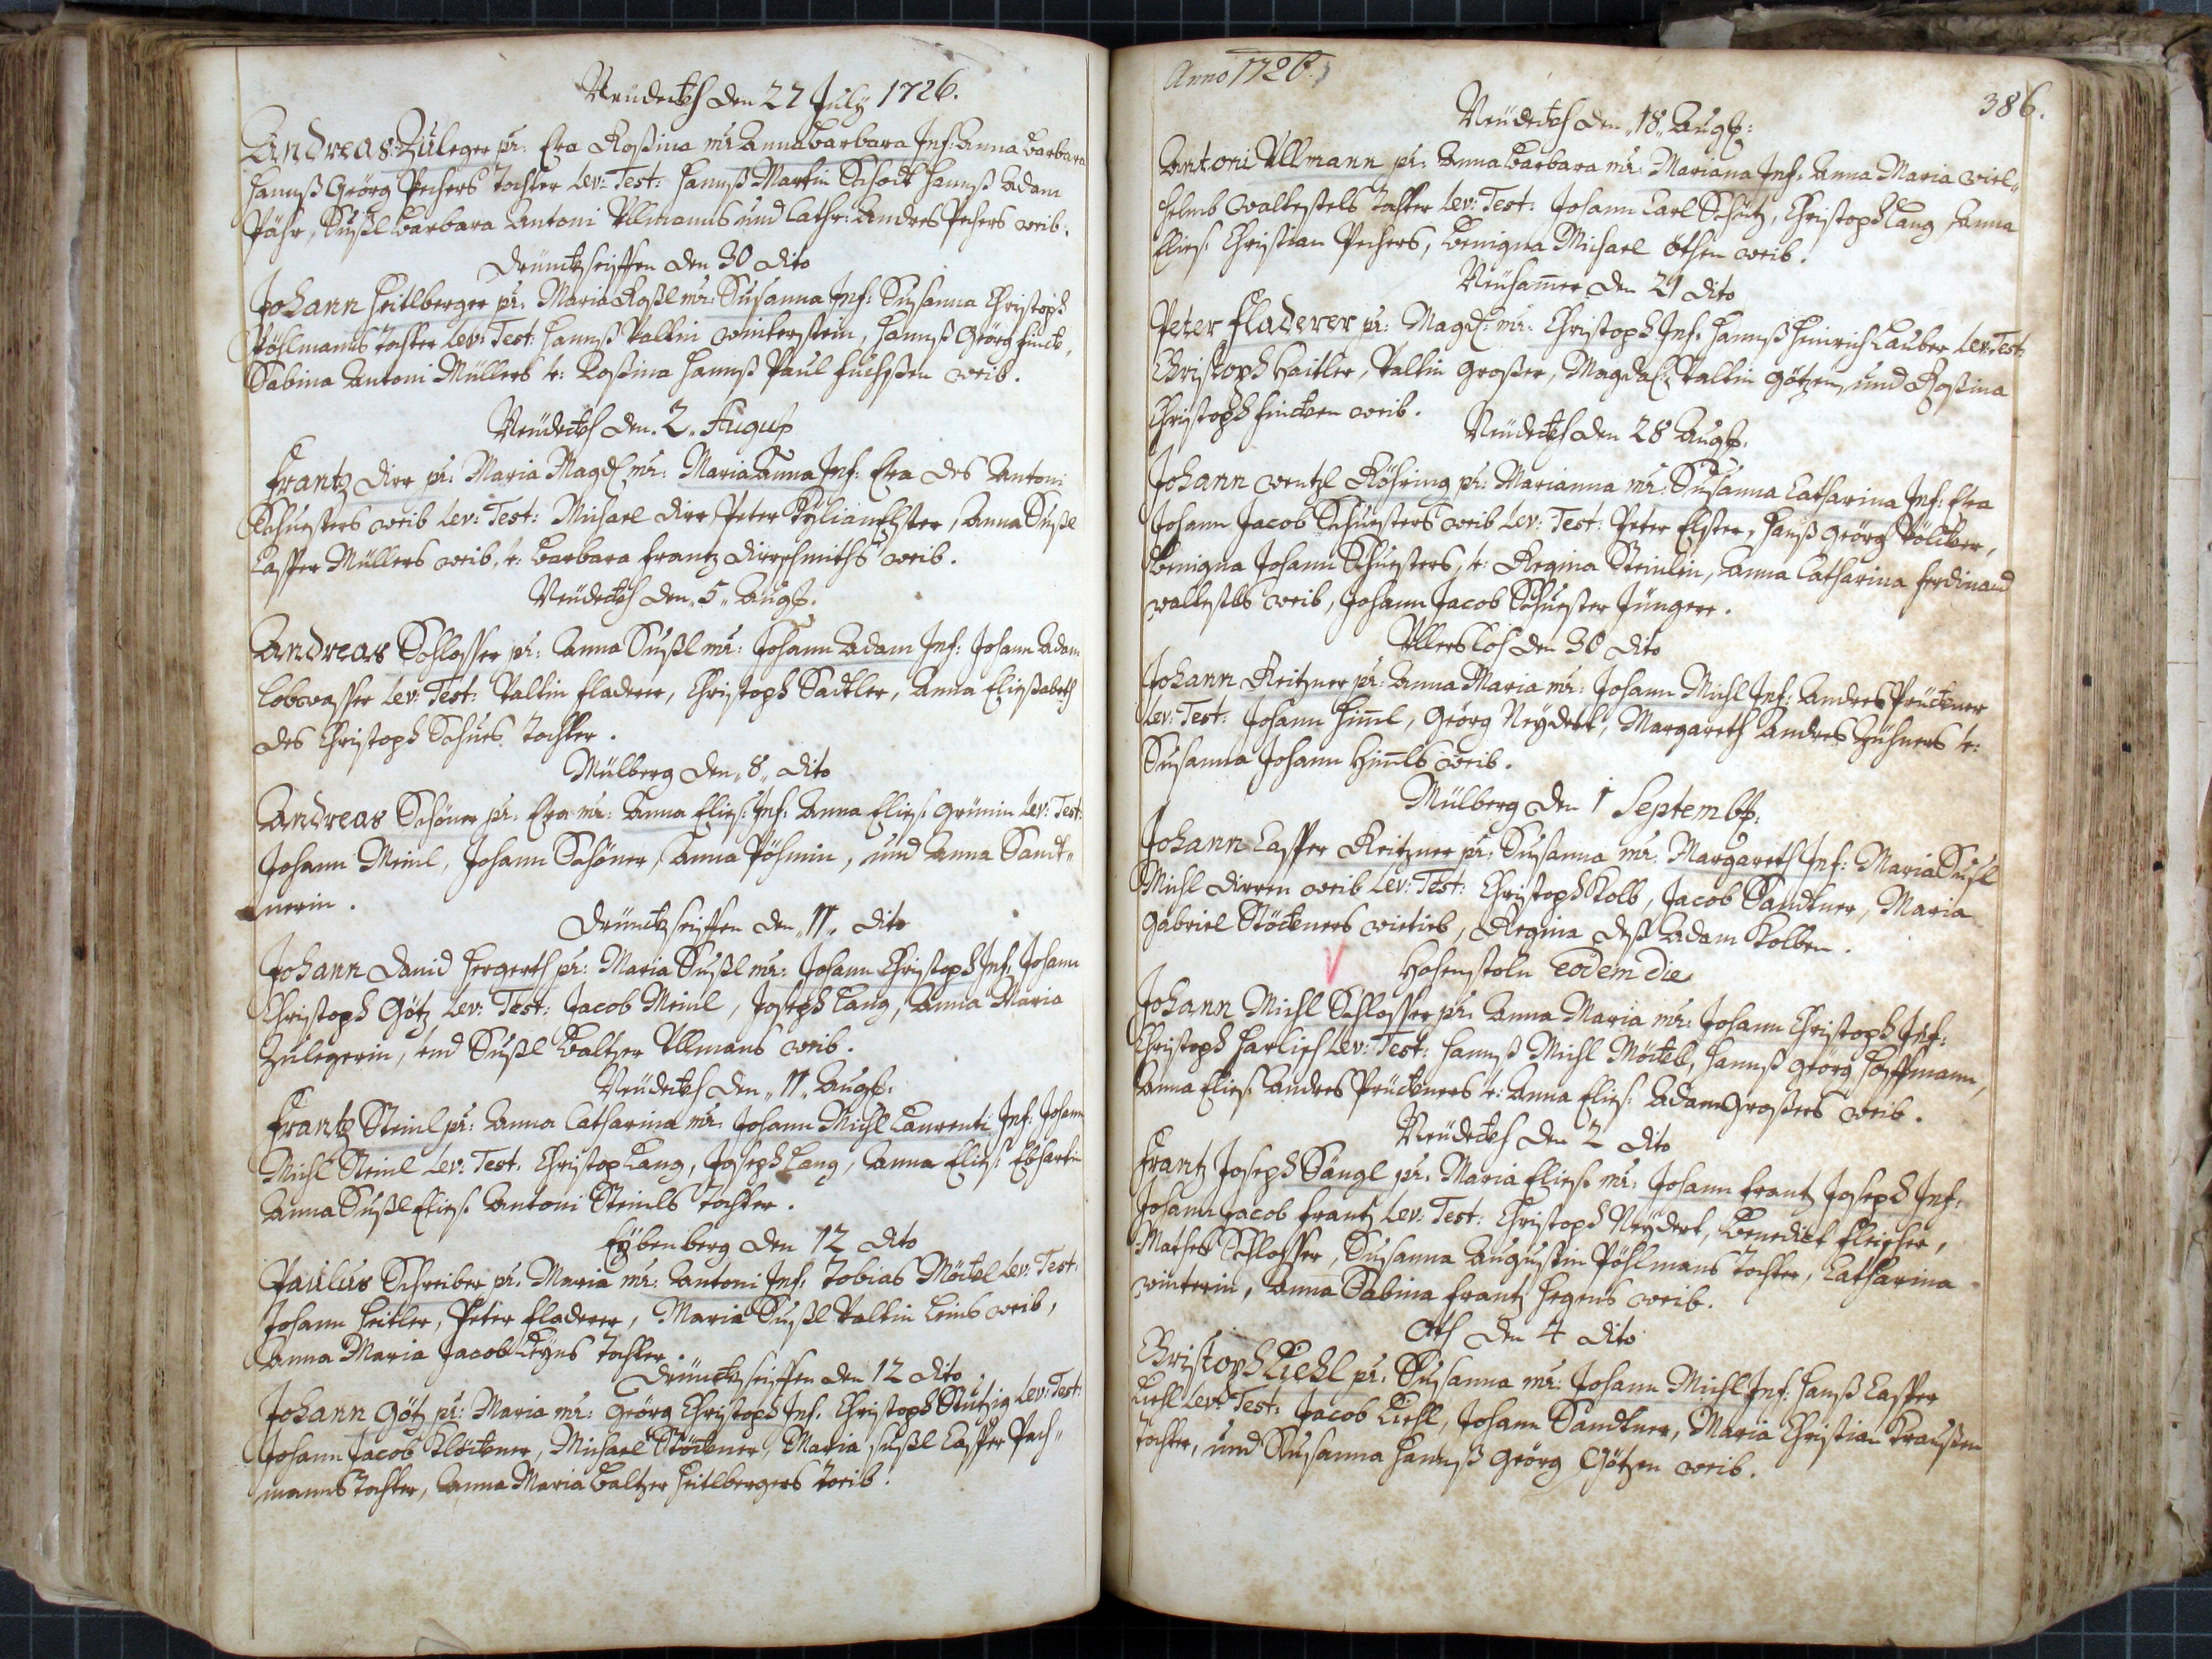 Neudeckh den 27 July 1726.
Andreas Züleger pr: Eva Rosina mr: Anna Barbara Inf: Anna Barbara
Hannß Georg Pechers Tochter Lev: Test: Hannß Martin Schock Hannß Adam
Pähr, Sußl Barbara Antoni Ullmanns und Cathr: Andres Pechers weib.
Drinckseiffen den 30 dito
Johann Heitlberger pr: Maria Roßl mr: Susanna Inf: Susanna Christoph
Pöhlmanns Tochter Lev: Test: Hannß Valtin Winterstein, Hannß Georg Finck,
Sabina Antoni Müllers et: Rosina Hannß Paul Fuchßen weib.
Neudeckh den 2. August
Frantz Dirr pr: Maria Magd: mr: Maria Anna Inf: Eva des Antoni
Schuesters weib Lev: Test: Michael Dirr, Peter Kylian Elster, Anna Sußl
Casper Müllers weib, et: Barbara Frantz Dirrschmiths weib.
Neudeckh den 5 Augst:
Andreas Schlosser pr: Anna Sußl mr: Johann Adam Inf: Johann Adam
Lobwasser Lev: Test: Valtin Fladerer, Christoph Sattler, Anna Elisabeth
des Christoph Schues Tochter.
Mülberg den 8 dito
Andreas Schöner pr: Eva mr: Anna Elies: Inf: Anna Elies: Grünin Lev: Test:
Johann Meinl, Johann Schöner, Anna Pöhmin, und Anna Sandt"
nerin.
Drinckseiffen den 11 dito
Johann David Hergerth pr: Maria Sußl mr: Johann Christoph Inf: Johann
Christoph Götz Lev: Test: Jacob Meinl, Joseph Lang, Anna Maria
Zulegerin, und Sußl Baltzer Ullmans weib.
Neudeckh den 11 Augst:
Frantz Steinl pr: Anna Catharina mr: Johann Michl Laurenti Inf: Johann
Michl Steinl Lev: Test: Christop Lang, Joseph Lang, Anna Elies:
Anna Sußl Elies: Antoni Steinls Tochter.
Eybenberg den 12 dito
Paulus Schreiber pr: Maria mr: Antoni Inf: Tobias Möckel Lev: Test:
Johann Heitler, Peter Fladerer, Maria Sußl Valtin Leins weib,
Anna Maria Jacob Heyns Tochter.
Drinckseiffen den 12 dito
Johann Götz pr: Maria mr: Georg Christoph Inf: Christoph Stutzig Lev: Test:
Johann Jacob Klöckner, Michael Stöckner, Maria Sußl Casper Pech"
manns Tochter, Anna Maria Baltzer Heitlbergers weib.
Anno 1726.
386.
Neudeckh den 18 Augst:
Antoni Ullmann pr: Anna Barbara mr: Mariana Inf: Anna Maria Wiel"
helmb Waltestels Tochter Lev: Test: Johann Carl Schütz, Christoph Lang, Anna
Elies: Christian Pechers, Benigna Michael Othen weib.
Neuhamer den 21 dito
Peter Fladerer pr: Magd: mr: Christoph Inf: Hannß Heinrich Lauber Lev: Test:
Christoph Haitler, Valtin Großer, Magdal: Valtin Götzen, und Rosina
Christoph Fincken weib.
Neudeckh den 28 Augst:
Johann Wentzl Röhring pr: Marianna mr: Susanna Catharina Inf: Eva
Johann Jacob Schuesters weib Lev: Test: Peter Elster, Hanß Georg Pölcker,
Benigna Johann Schuesters, et: Regina Steinlin, Anna Catharina Ferdinand
Waltestls weib, Johann Jacob Schuester Jüngere.
Ullersloh den 30 dito
Johann Reitzner pr: Anna Maria mr: Johann Michl Inf: Andres Prückner
Lev: Test: Johann Himl, Georg Neydert, Margareth Andres Hühners et:
Susanna Johann Himls weib.
Mülberg den 1 Septemb:
Johann Casper Reitzner pr: Susanna mr: Margareth Inf: Maria Sußl
Michl Dirren weib Lev: Test: Christoph Kolb, Jacob Sandtner, Maria
Gabriel Stöckners wietieb, Regina deß Adam Kolben.
Hohenstoln Eodem die
Johann Michl Schlosser pr: Anna Maria mr: Johann Christoph Inf:
Christoph Harlich Lev: Test: Hannß Michl Möckl, Hannß Georg Hoffmann,
Anna Elies: Andres Prückners et: Anna Elies: Adam Großers weib.
Neudeckh den 2 dito
Frantz Joseph Sängl pr: Maria Elies: mr: Johann Frantz Joseph Inf:
Johann Jacob Frantz Lev: Test: Christoph Neydert, Benedict Fleischer,
Matheß Schlosser, Susanna Augustin Pöhlmans Tochter, Catharina
Winterin, Anna Sabina Frantz Hegens weib.
Oth den 4 dito
Christoph Liehl pr: Susanna mr: Johann Michl Inf: Hanß Casper
Liehl Lev: Test: Jacob Liehl, Johann Sandtner, Maria Christian Kraußen
Tochter, und Susanna Hannß Georg Götzen weib.